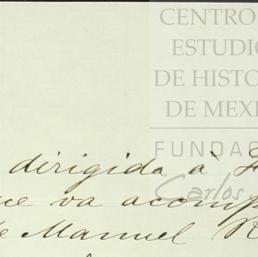 CENTRO
ESTUDIO
DE HISTO
DE MEXI
FUNDAC
Carlos
dirigida à F
ue va acomp
de Manuel R